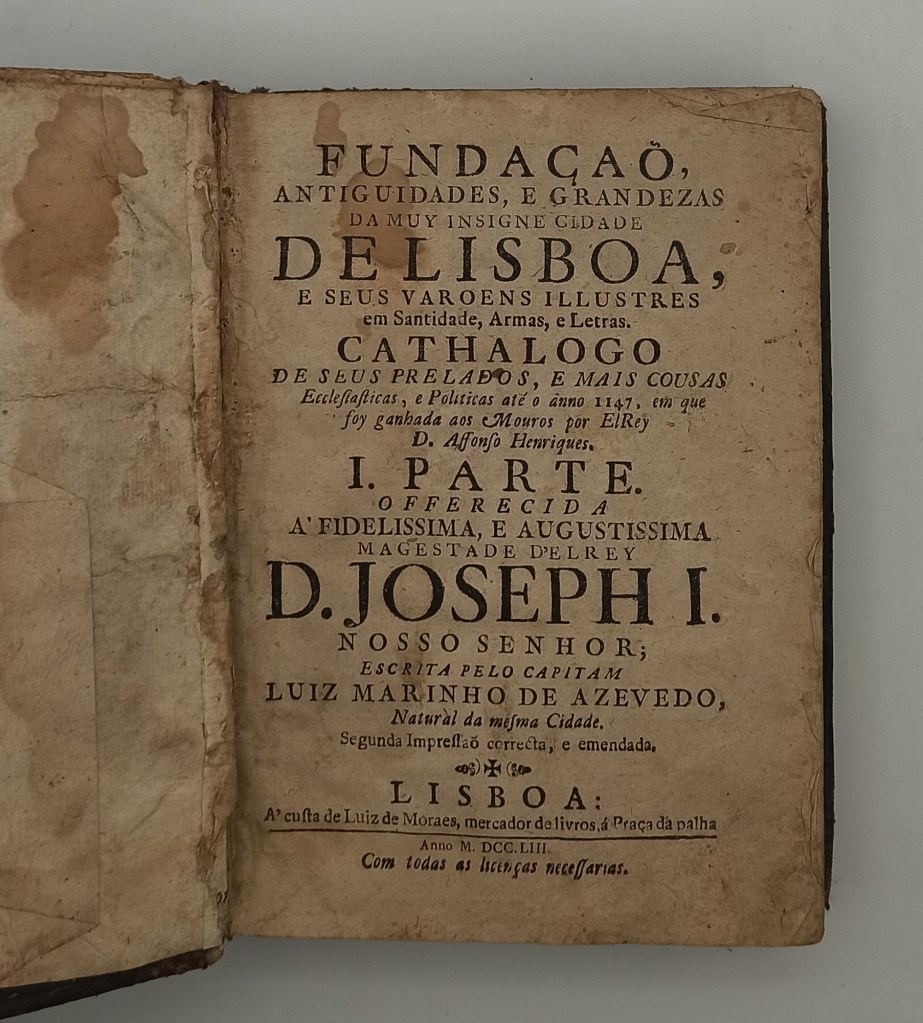 FUNDAÇAÕ,
ANTIGUIDADES, E GRANDEZAS
DA MUY INSIGNE CIDADE
DE LISBOA,
E SEUS VAROENS ILLUSTRES
em Santidade, Armas, e Letras.
CATHALOGO
DE SEUS PRELADOS, E MAIS COUSAS
Eccleſiaſticas, e Politicas até o anno 1147, em que
foy ganhada aos Mouros por ElRey
D. Affonſo Henriques.
I. PARTE.
OFFERECIDA
A' FIDELISSIMA, E AUGUSTISSIMA
MAGESTADE D'ELREY
D. JOSEPH I.
NOSSO SENHOR;
ESCRITA PELO CAPITAM
LUIZ MARINHO DE AZEVEDO,
Natural da meſma Cidade.
Segunda Impreſſaõ correcta, e emendada.
LISBOA:
A' cuſta de Luiz de Moraes, mercador de livros, á Praça da palha
Anno M. DCC. LIII.
Com todas as licenças neceſſarias.